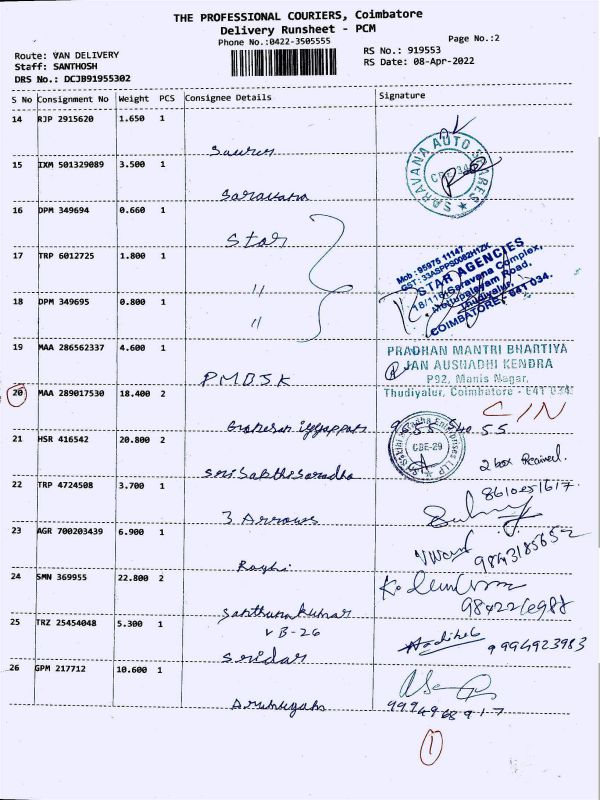 THE PROFESSIONAL COURIERS, Coimbatore
Delivery Runsheet - PCM
Phone No.:0422-3505555
Page No.:2
Route: VAN DELIVERY
Staff: SANTHOSH
DRS No.: DCJB91955302
RS No.: 919553
RS Date: 08-Apr-2022
S No Consignment No Weight PCS Consignee Details Signature
14 RJP 2915620 1.650 1
SARAVANA AUTO SPARES
15 IXM 501329089 3.500 1
Saravana
16 DPM 349694 0.660 1
Star
17 TRP 6012725 1.800 1
"
Mob : 95975 11147
STAR AGENCIES
Saravana Complex,
Mettupalayam Road,
Thudiyalur,
COIMBATORE - 641 034.
18 DPM 349695 0.800 1
"
19 MAA 286562337 4.600 1
P.M.B.J.K
PRADHAN MANTRI BHARTIYA
JAN AUSHADHI KENDRA
P92, Manis Nagar,
Thudiyalur, Coimbatore - 641 034.
20 MAA 289017530 18.400 2
C/N
21 HSR 416542 20.800 2
Sri Sakthi Saradha
CBE-29
2 box Received.
22 TRP 4724508 3.700 1
3 Arrows
8610251617.
23 AGR 700203439 6.900 1
Raghi
9843185652
24 SMN 369955 22.800 2
Santhum kumar
VB-26
25 TRZ 25454048 5.300 1
Sridar
9994923983
26 GPM 217712 10.600 1
Arumugam
9994968917
1